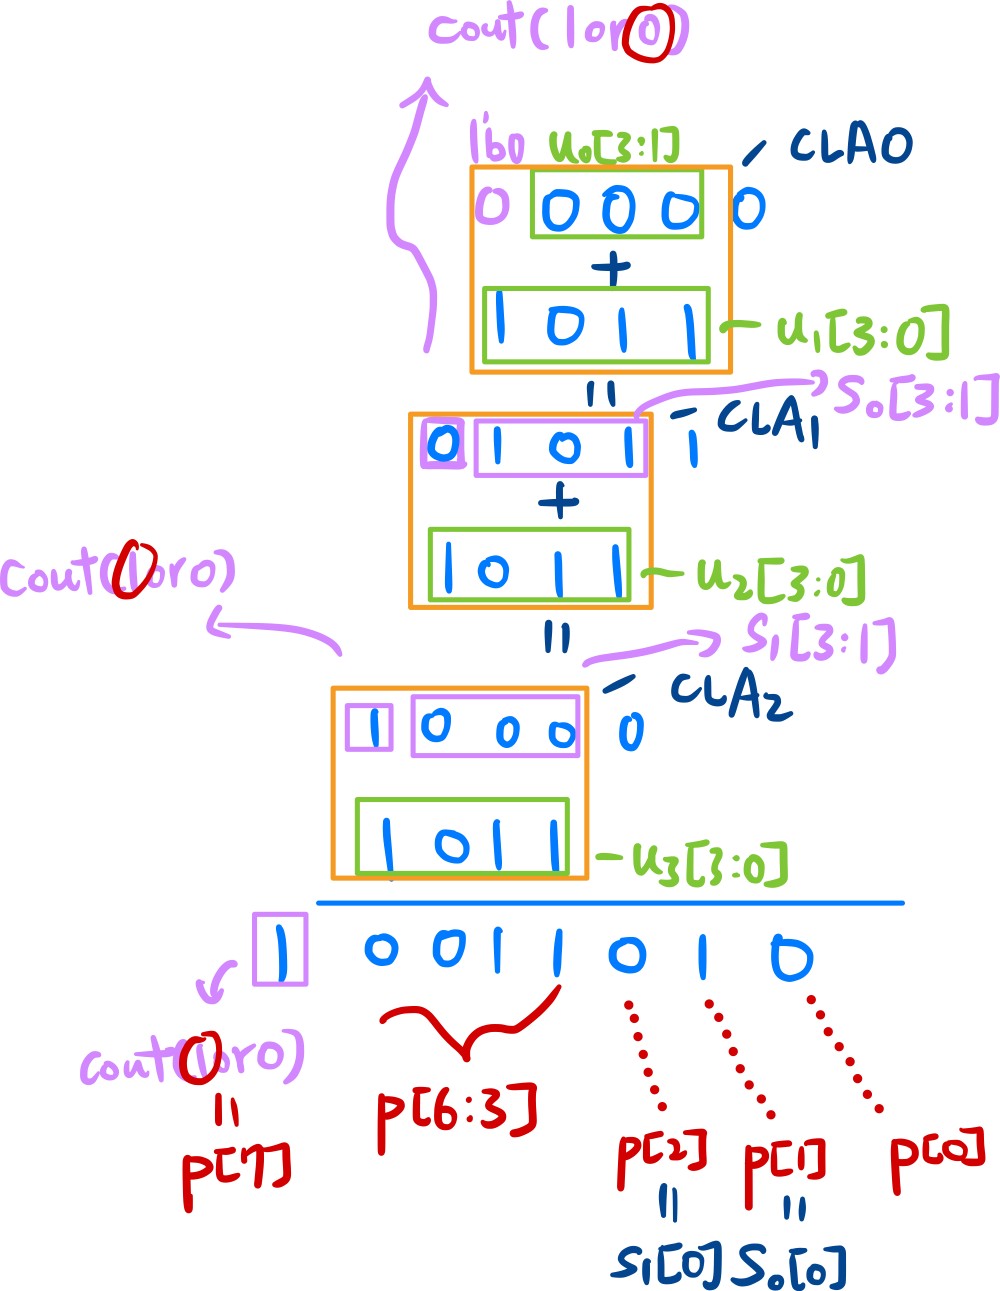 cout(1or0)
1'b0 u₀[3:1] CLA0
0 0 0 0 0
+
1 0 1 1 u₁[3:0]
= S₀[3:1]
0 1 0 1 1 CLA₁
+
1 0 1 1 u₂[3:0]
cout(1or0)
= S₁[3:1]
CLA₂
1 0 0 0 0
1 0 1 1 u₃[3:0]
1 0 0 1 1 0 1 0
cout(1or0)
= p[6:3]
p[7] p[2] p[1] p[0]
= =
S₁[0] S₀[0]